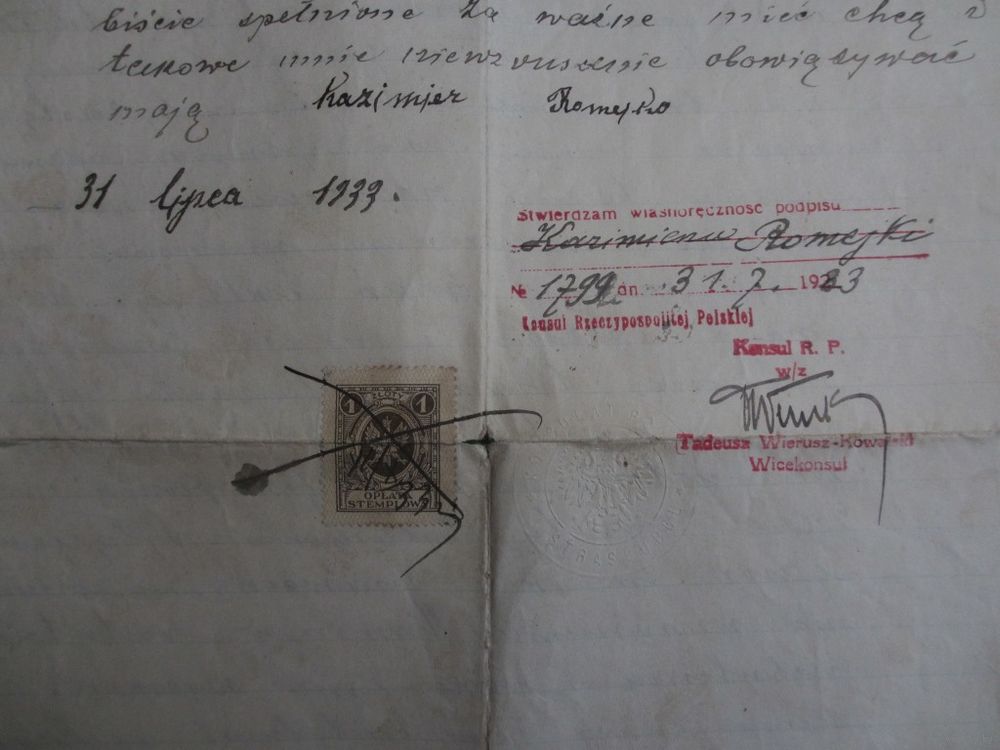 biście spełnione za ważne mieć chcą i
takowe mnie niewzruszenie obowiązywać
mają Kazimier Romejko
31 lipca 1933.
Stwierdzam własnoręczność podpisu
Kazimierza Romejki
№ dn. 31. 7. 1933
Konsul Rzeczypospolitej Polskiej
Konsul R. P.
w/z
Tadeusz Wierusz-Kowalski
Wicekonsul
ZŁOTY
1 1
OPŁATA
STEMPLOWA